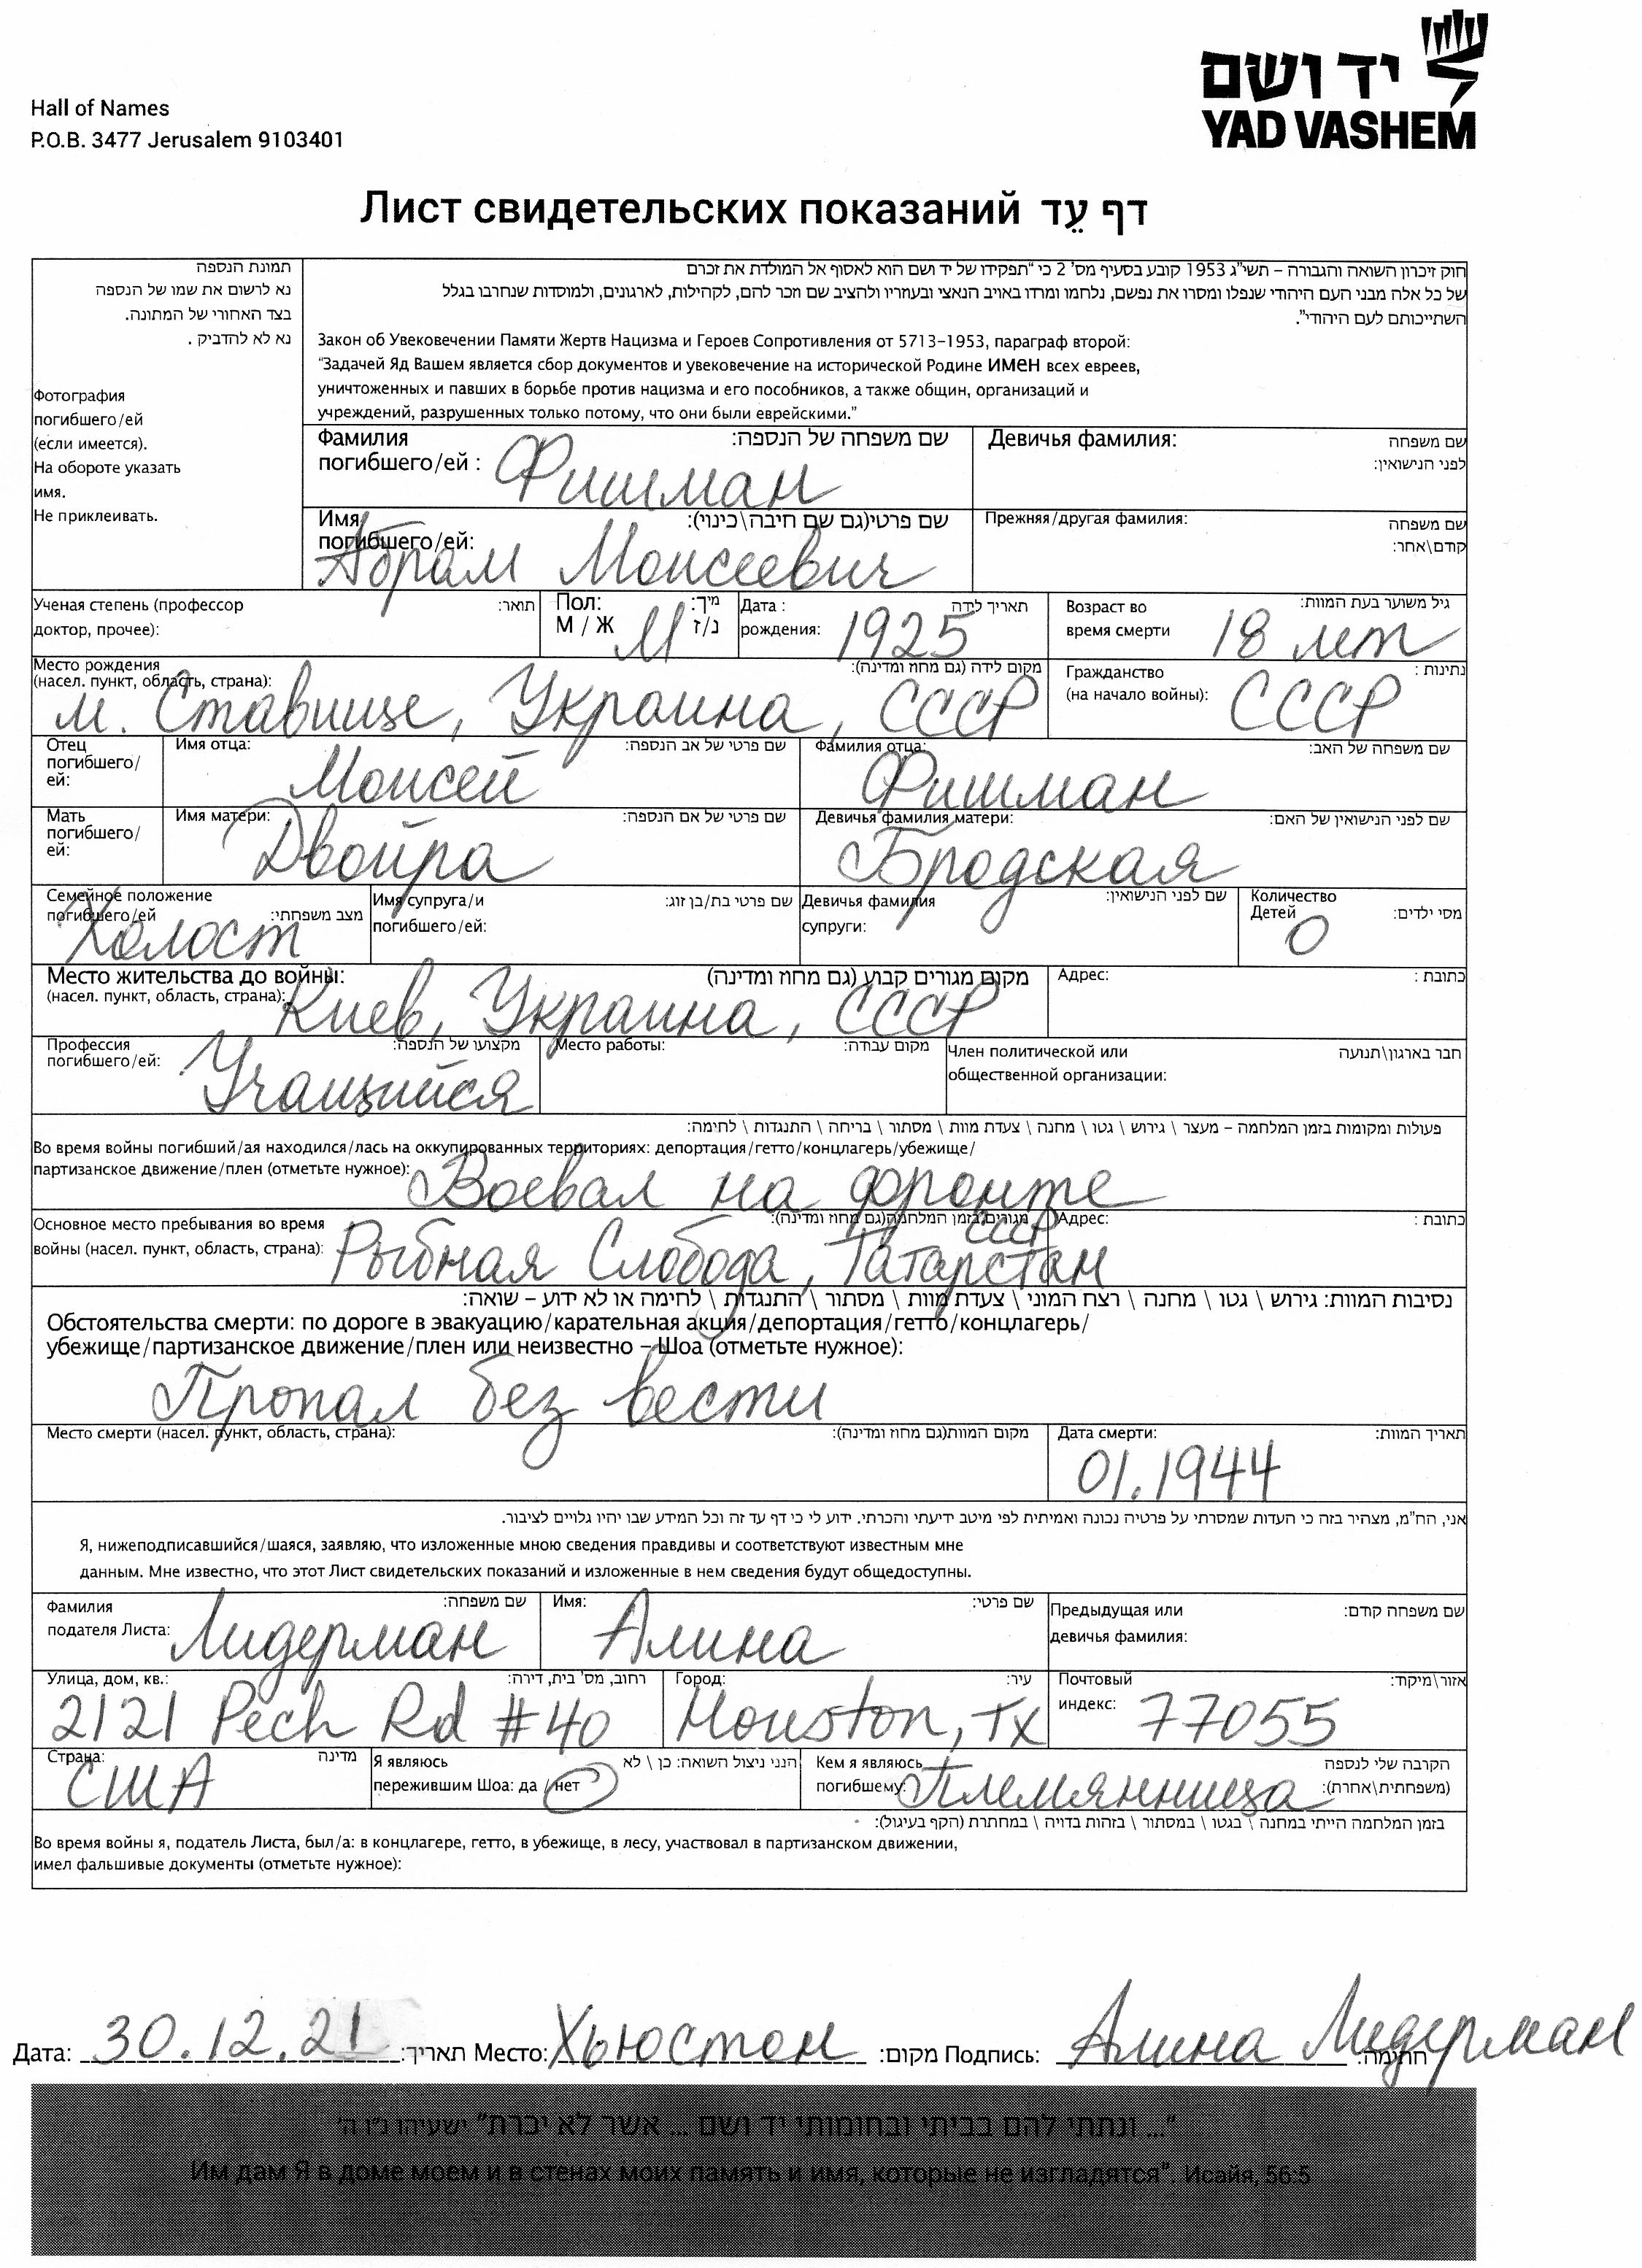 יד ושם
YAD VASHEM
Hall of Names
P.O.B. 3477 Jerusalem 9103401
Лист свидетельских показаний דף עֵד
תמונת הנספה
נא לרשום את שמו של הנספה
בצד האחורי של המתונה.
נא לא להדביק .
Фотография
погибшего/ей
(если имеется).
На обороте указать
имя.
Не приклеивать.
חוק זיכרון השואה והגבורה – תשי"ג 1953 קובע בסעיף מס' 2 כי "תפקידו של יד ושם הוא לאסוף אל המולדת את זכרם
של כל אלה מבני העם היהודי שנפלו ומסרו את נפשם, נלחמו ומרדו באויב הנאצי ובעוזריו ולהציב שם וזכר להם, לקהילות, לארגונים, ולמוסדות שנחרבו בגלל
השתייכותם לעם היהודי".
Закон об Увековечении Памяти Жертв Нацизма и Героев Сопротивления от 5713–1953, параграф второй:
"Задачей Яд Вашем является сбор документов и увековечение на исторической Родине имен всех евреев,
уничтоженных и павших в борьбе против нацизма и его пособников, а также общин, организаций и
учреждений, разрушенных только потому, что они были еврейскими."
Фамилия שם משפחה של הנספה:
погибшего/ей : Фишман
Девичья фамилия: שם משפחה
לפני הנישואין:
Имя שם פרטי(גם שם חיבה\כינוי):
погибшего/ей:
Абрам Моисеевич
Прежняя/другая фамилия: שם משפחה
קודם\אחר:
Ученая степень (профессор תואר:
доктор, прочее):
Пол: מין:
М / Ж М נ/ז
Дата : תאריך לידה
рождения: 1925
Возраст во גיל משוער בעת המוות:
время смерти 18 лет
Место рождения מקום לידה (גם מחוז ומדינה):
(насел. пункт, область, страна):
м. Ставище, Украина, СССР
Гражданство נתינות :
(на начало войны): СССР
Отец
погибшего/
ей:
Имя отца: שם פרטי של אב הנספה:
Моисей
Фамилия отца: שם משפחה של האב:
Фишман
Мать
погибшего/
ей:
Имя матери: שם פרטי של אם הנספה:
Двойра
Девичья фамилия матери: שם לפני הנישואין של האם:
Бродская
Семейное положение
погибшего/ей מצב משפחתי:
Холост
Имя супруга/и שם פרטי בת/בן זוג:
погибшего/ей:
Девичья фамилия שם לפני הנישואין:
супруги:
Количество
Детей מסי ילדים:
0
Место жительства до войны: מקום מגורים קבוע (גם מחוז ומדינה)
(насел. пункт, область, страна):
Киев, Украина, СССР
Адрес: כתובת :
Профессия מקצועו של הנספה:
погибшего/ей:
Учащийся
Место работы: מקום עבודה:
Член политической или חבר בארגון\תנועה
общественной организации:
פעולות ומקומות בזמן המלחמה – מעצר \ גירוש \ גטו \ מחנה \ צעדת מוות \ מסתור \ בריחה \ התנגדות \ לחימה:
Во время войны погибший/ая находился/лась на оккупированных территориях: депортация/гетто/концлагерь/убежище/
партизанское движение/плен (отметьте нужное):
Воевал на фронте
Основное место пребывания во время מגורים בזמן המלחמה(גם מחוז ומדינה):
войны (насел. пункт, область, страна): СССР
Рыбная Слобода, Татарстан
Адрес: כתובת :
נסיבות המוות: גירוש \ גטו \ מחנה \ רצח המוני \ צעדת מוות \ מסתור \ התנגדות \ לחימה או לא ידוע – שואה:
Обстоятельства смерти: по дороге в эвакуацию/карательная акция/депортация/гетто/концлагерь/
убежище/партизанское движение/плен или неизвестно – Шоа (отметьте нужное):
Пропал без вести
Место смерти (насел. пункт, область, страна): מקום המוות(גם מחוז ומדינה):
Дата смерти: תאריך המוות:
01.1944
אני, הח"מ, מצהיר בזה כי העדות שמסרתי על פרטיה נכונה ואמיתית לפי מיטב ידיעתי והכרתי. ידוע לי כי דף עד זה וכל המידע שבו יהיו גלויים לציבור.
Я, нижеподписавшийся/шаяся, заявляю, что изложенные мною сведения правдивы и соответствуют известным мне
данным. Мне известно, что этот Лист свидетельских показаний и изложенные в нем сведения будут общедоступны.
Фамилия שם משפחה:
подателя Листа: Лидерман
Имя: שם פרטי:
Алина
Предыдущая или שם משפחה קודם:
девичья фамилия:
Улица, дом, кв.: רחוב, מס' בית, דירה:
2121 Pech Rd #40
Город: עיר:
Houston, TX
Почтовый אזור\מיקוד:
индекс: 77055
Страна: מדינה
США
Я являюсь הנני ניצול השואה: כן \ לא
пережившим Шоа: да /нет
Кем я являюсь הקרבה שלי לנספה
погибшему: (משפחתית\אחרת):
Племянница
בזמן המלחמה הייתי במחנה \ בגטו \ במסתור \ בזהות בדויה \ במחתרת (הקף בעיגול):
Во время войны я, податель Листа, был/а: в концлагере, гетто, в убежище, в лесу, участвовал в партизанском движении,
имел фальшивые документы (отметьте нужное):
Дата: 30.12.21 תאריך: Место: Хьюстон מקום: Подпись: Алина Лидерман חתימה:
"... ונתתי להם בביתי ובחומותי יד ושם ... אשר לא יכרת" ישעיהו נ"ו ה'
Им дам Я в доме моем и в стенах моих память и имя, которые не изгладятся". Исайя, 56:5